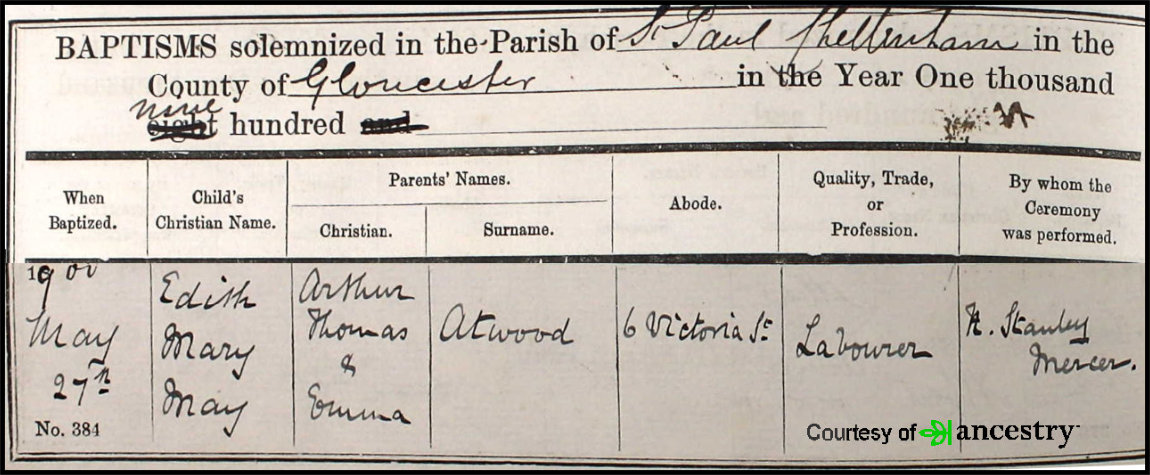 BAPTISMS solemnized in the Parish of St Paul Cheltenham in the
County of Gloucester in the Year One thousand
nine
eight hundred and
When
Baptized.
Child's
Christian Name.
Parents' Names.
Christian.
Surname.
Abode.
Quality, Trade,
or
Profession.
By whom the
Ceremony
was performed.
1900
May
27th
No. 384
Edith
Mary
May
Arthur
Thomas
&
Emma
Atwood
6 Victoria St
Labourer
Stanley
Mercer.
Courtesy of ancestry